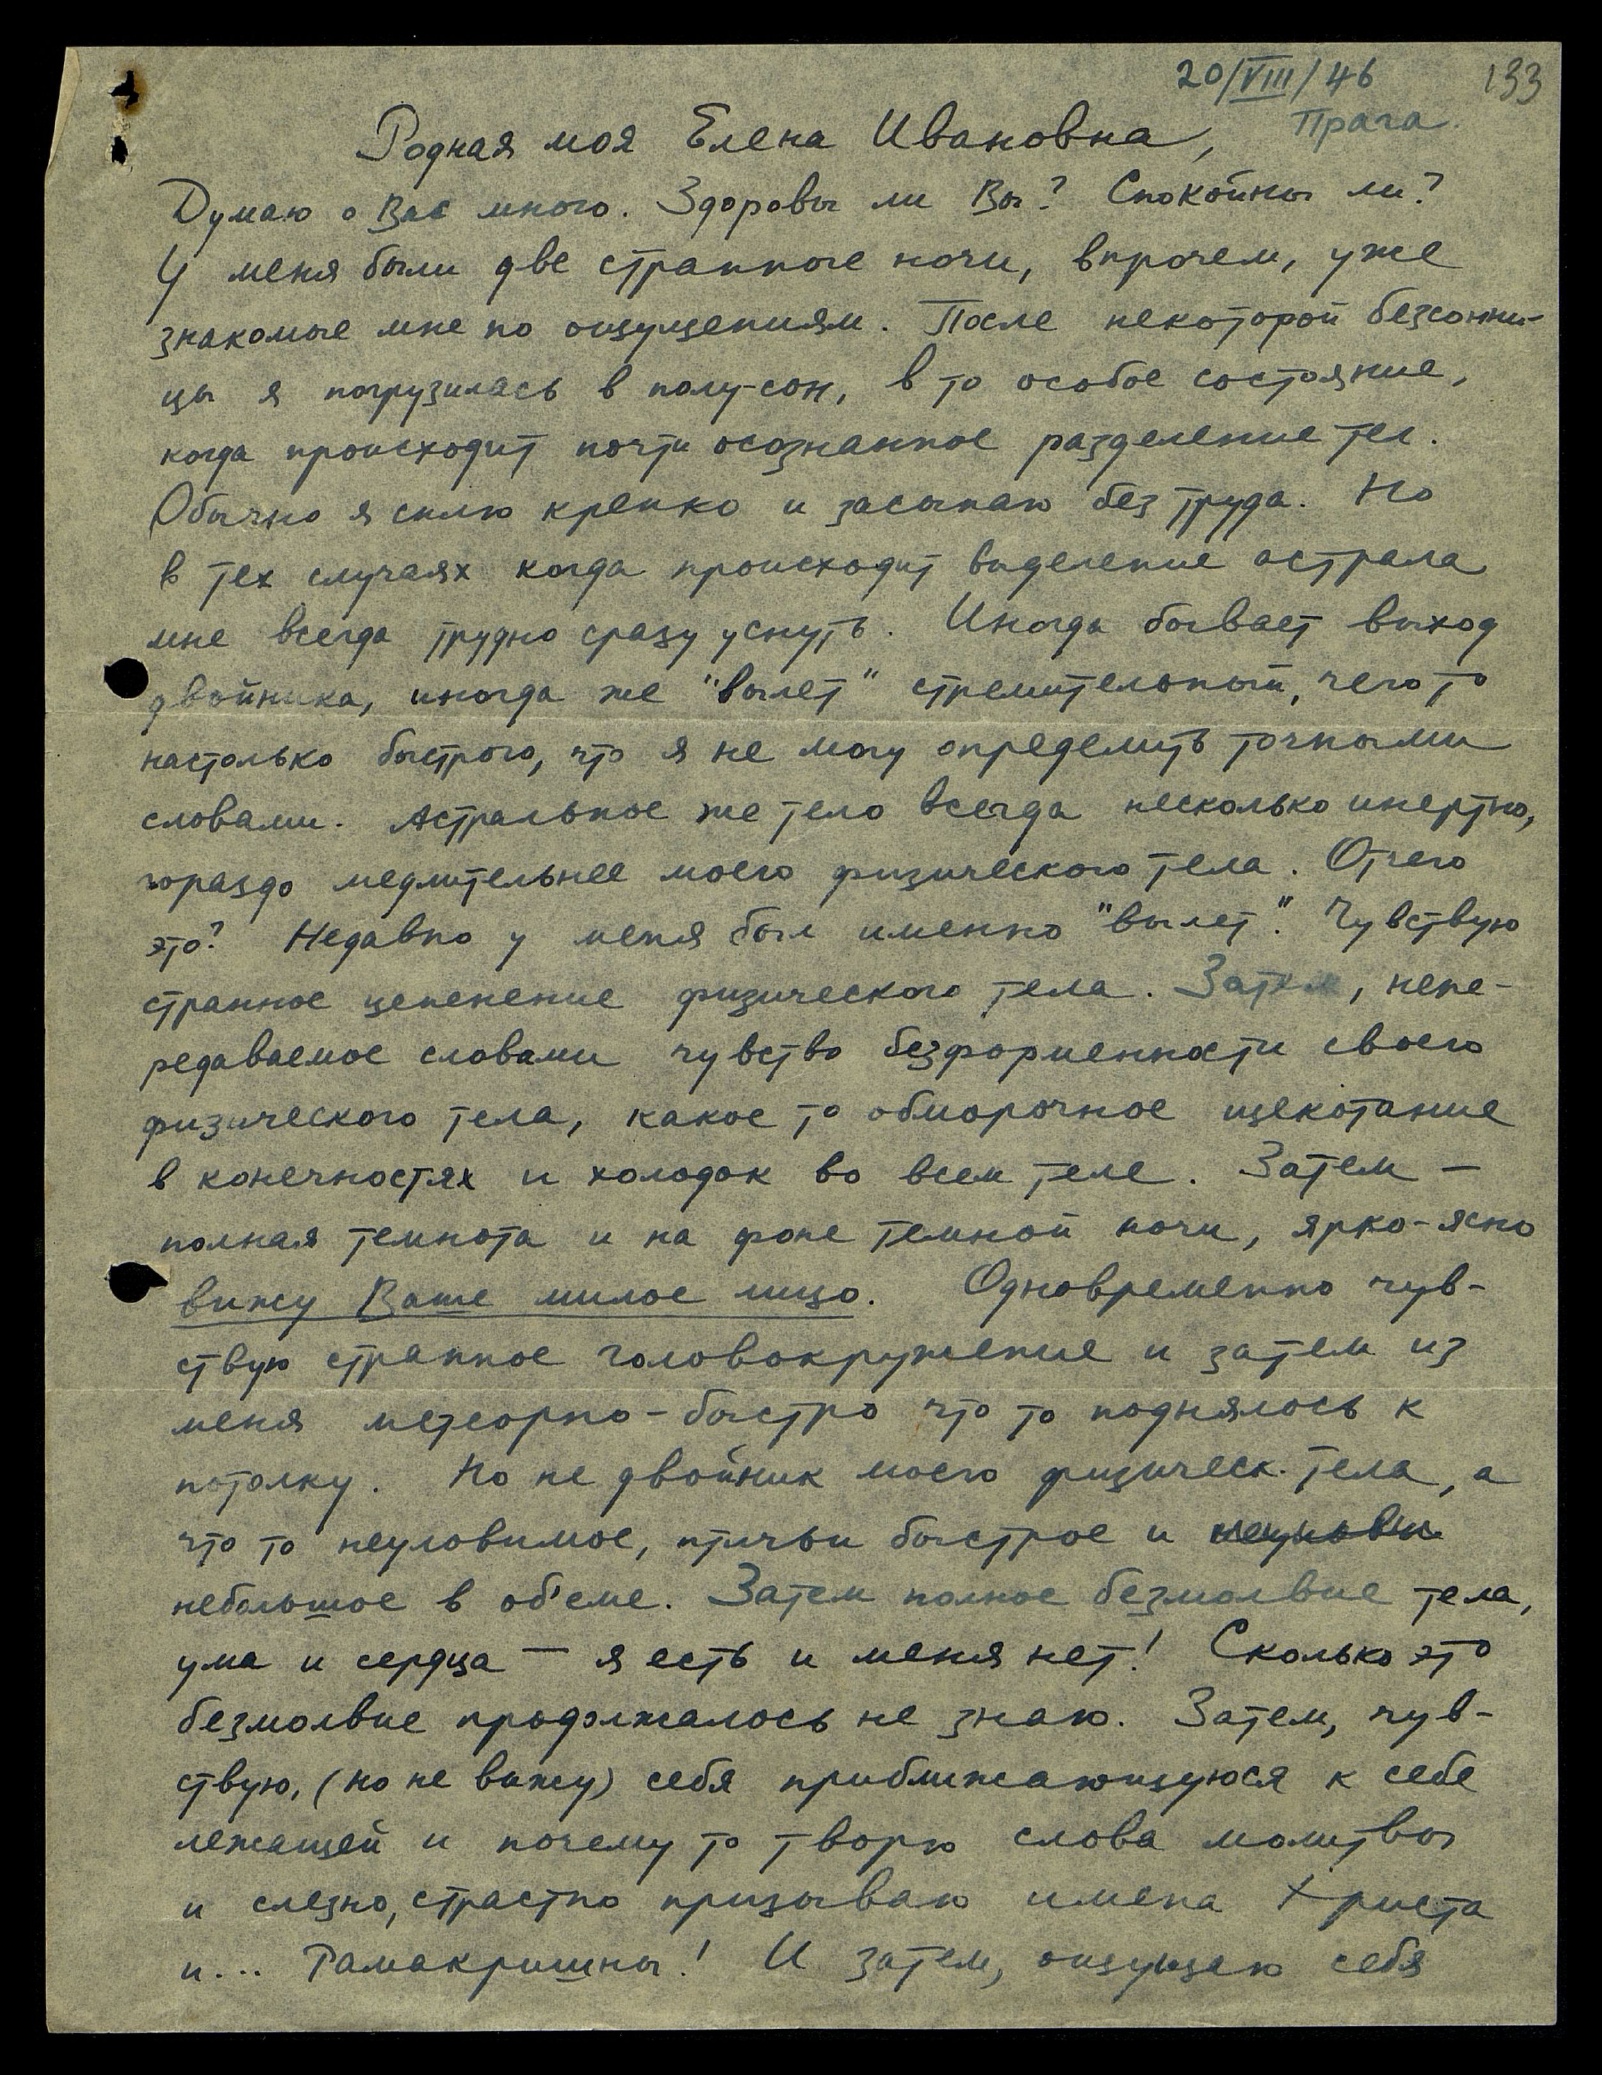 20/VIII/46
133
Прага.
Родная моя Елена Ивановна,
Думаю о Вас много. Здоровы ли Вы? Спокойны ли?
У меня были две странные ночи, впрочем, уже
знакомые мне по ощущениям. После некоторой безсонни-
цы я погрузилась в полу-сон, в то особое состояние,
когда происходит почти осознанное разделение тел.
Обычно я сплю крепко и засыпаю без труда. Но
в тех случаях когда происходит выделение астрала
мне всегда трудно сразу уснуть. Иногда бывает выход
двойника, иногда же "вылет" стремительный, чего то
настолько быстрого, что я не могу определить точными
словами. Астральное же тело всегда несколько инертно,
гораздо медлительнее моего физического тела. Отчего
это? Недавно у меня был именно "вылет". Чувствую
странное цепенение физического тела. Затем, непе-
редаваемое словами чувство безформенности своего
физического тела, какое то обморочное щекотание
в конечностях и холодок во всем теле. Затем —
полная темнота и на фоне темной ночи, ярко-ясно
вижу Ваше милое лицо. Одновременно чув-
ствую странное головокружение и затем из
меня метеорно-быстро что то поднялось к
потолку. Но не двойник моего физическ. тела, а
что то неуловимое, птичьи быстрое и неуловим
небольшое в об'еме. Затем полное безмолвие тела,
ума и сердца — я есть и меня нет! Сколько это
безмолвие продолжалось не знаю. Затем, чув-
ствую, (но не вижу) себя приближающуюся к себе
лежащей и почему то творю слова молитвы
и слезно, страстно призываю имена Христа
и... Рамакришны! И затем, ощущаю себя